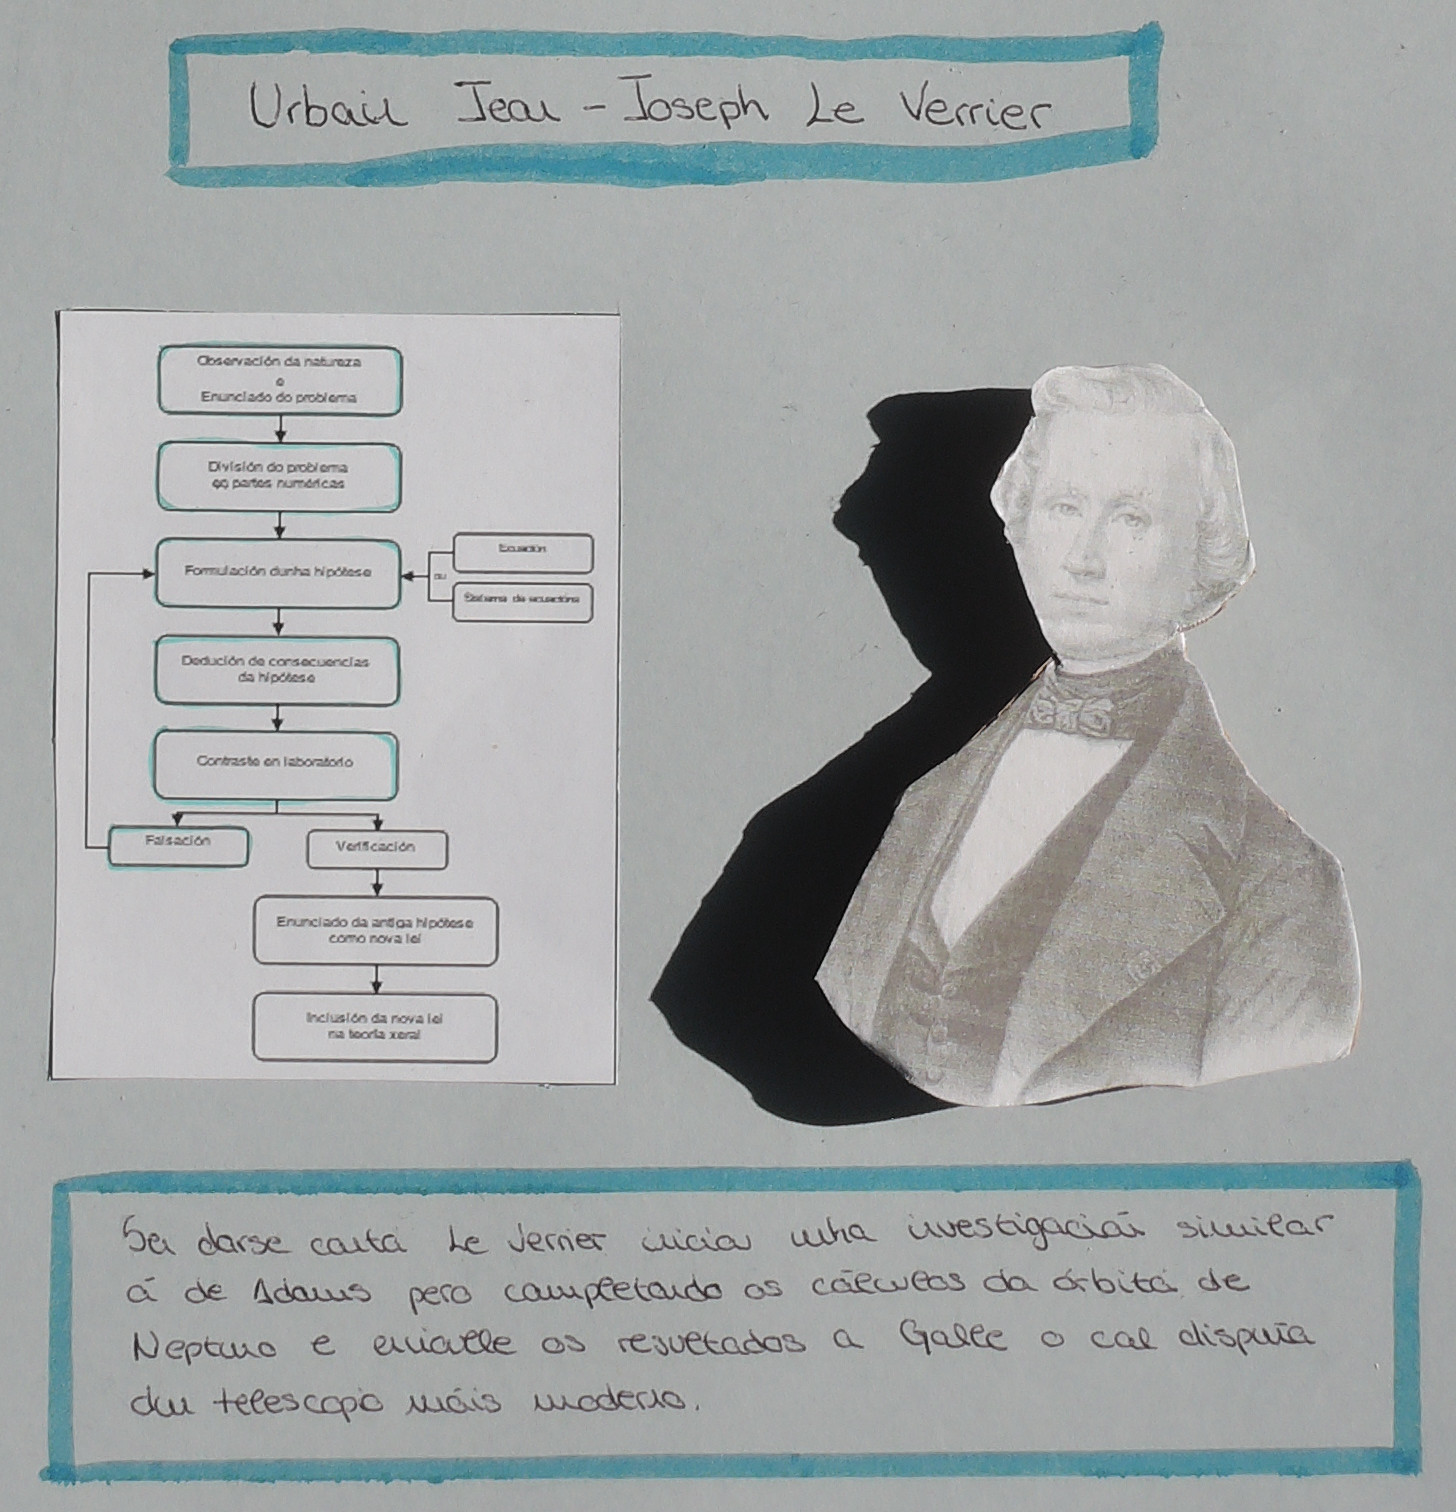 Urbain Jean-Joseph Le Verrier
Observación da natureza
e
Enunciado do problema
División do problema
en partes numéricas
Formulación dunha hipótese
Ecuación
ou
Sistema de ecuacións
Dedución de consecuencias
da hipótese
Contraste en laboratorio
Falsación
Verificación
Enunciado da antiga hipótese
como nova lei
Inclusión da nova lei
na teoría xeral
Sen darse conta Le Verrier inicia unha investigación similar
á de Adams pero completando os cálculos da órbita de
Neptuno e envialle os resultados a Galle o cal dispuña
dun telescopio máis moderno.